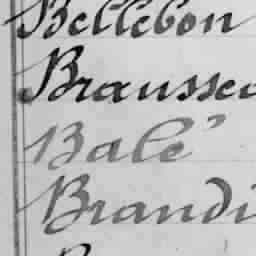 Bellebon
Brausse
Balé
Brandi